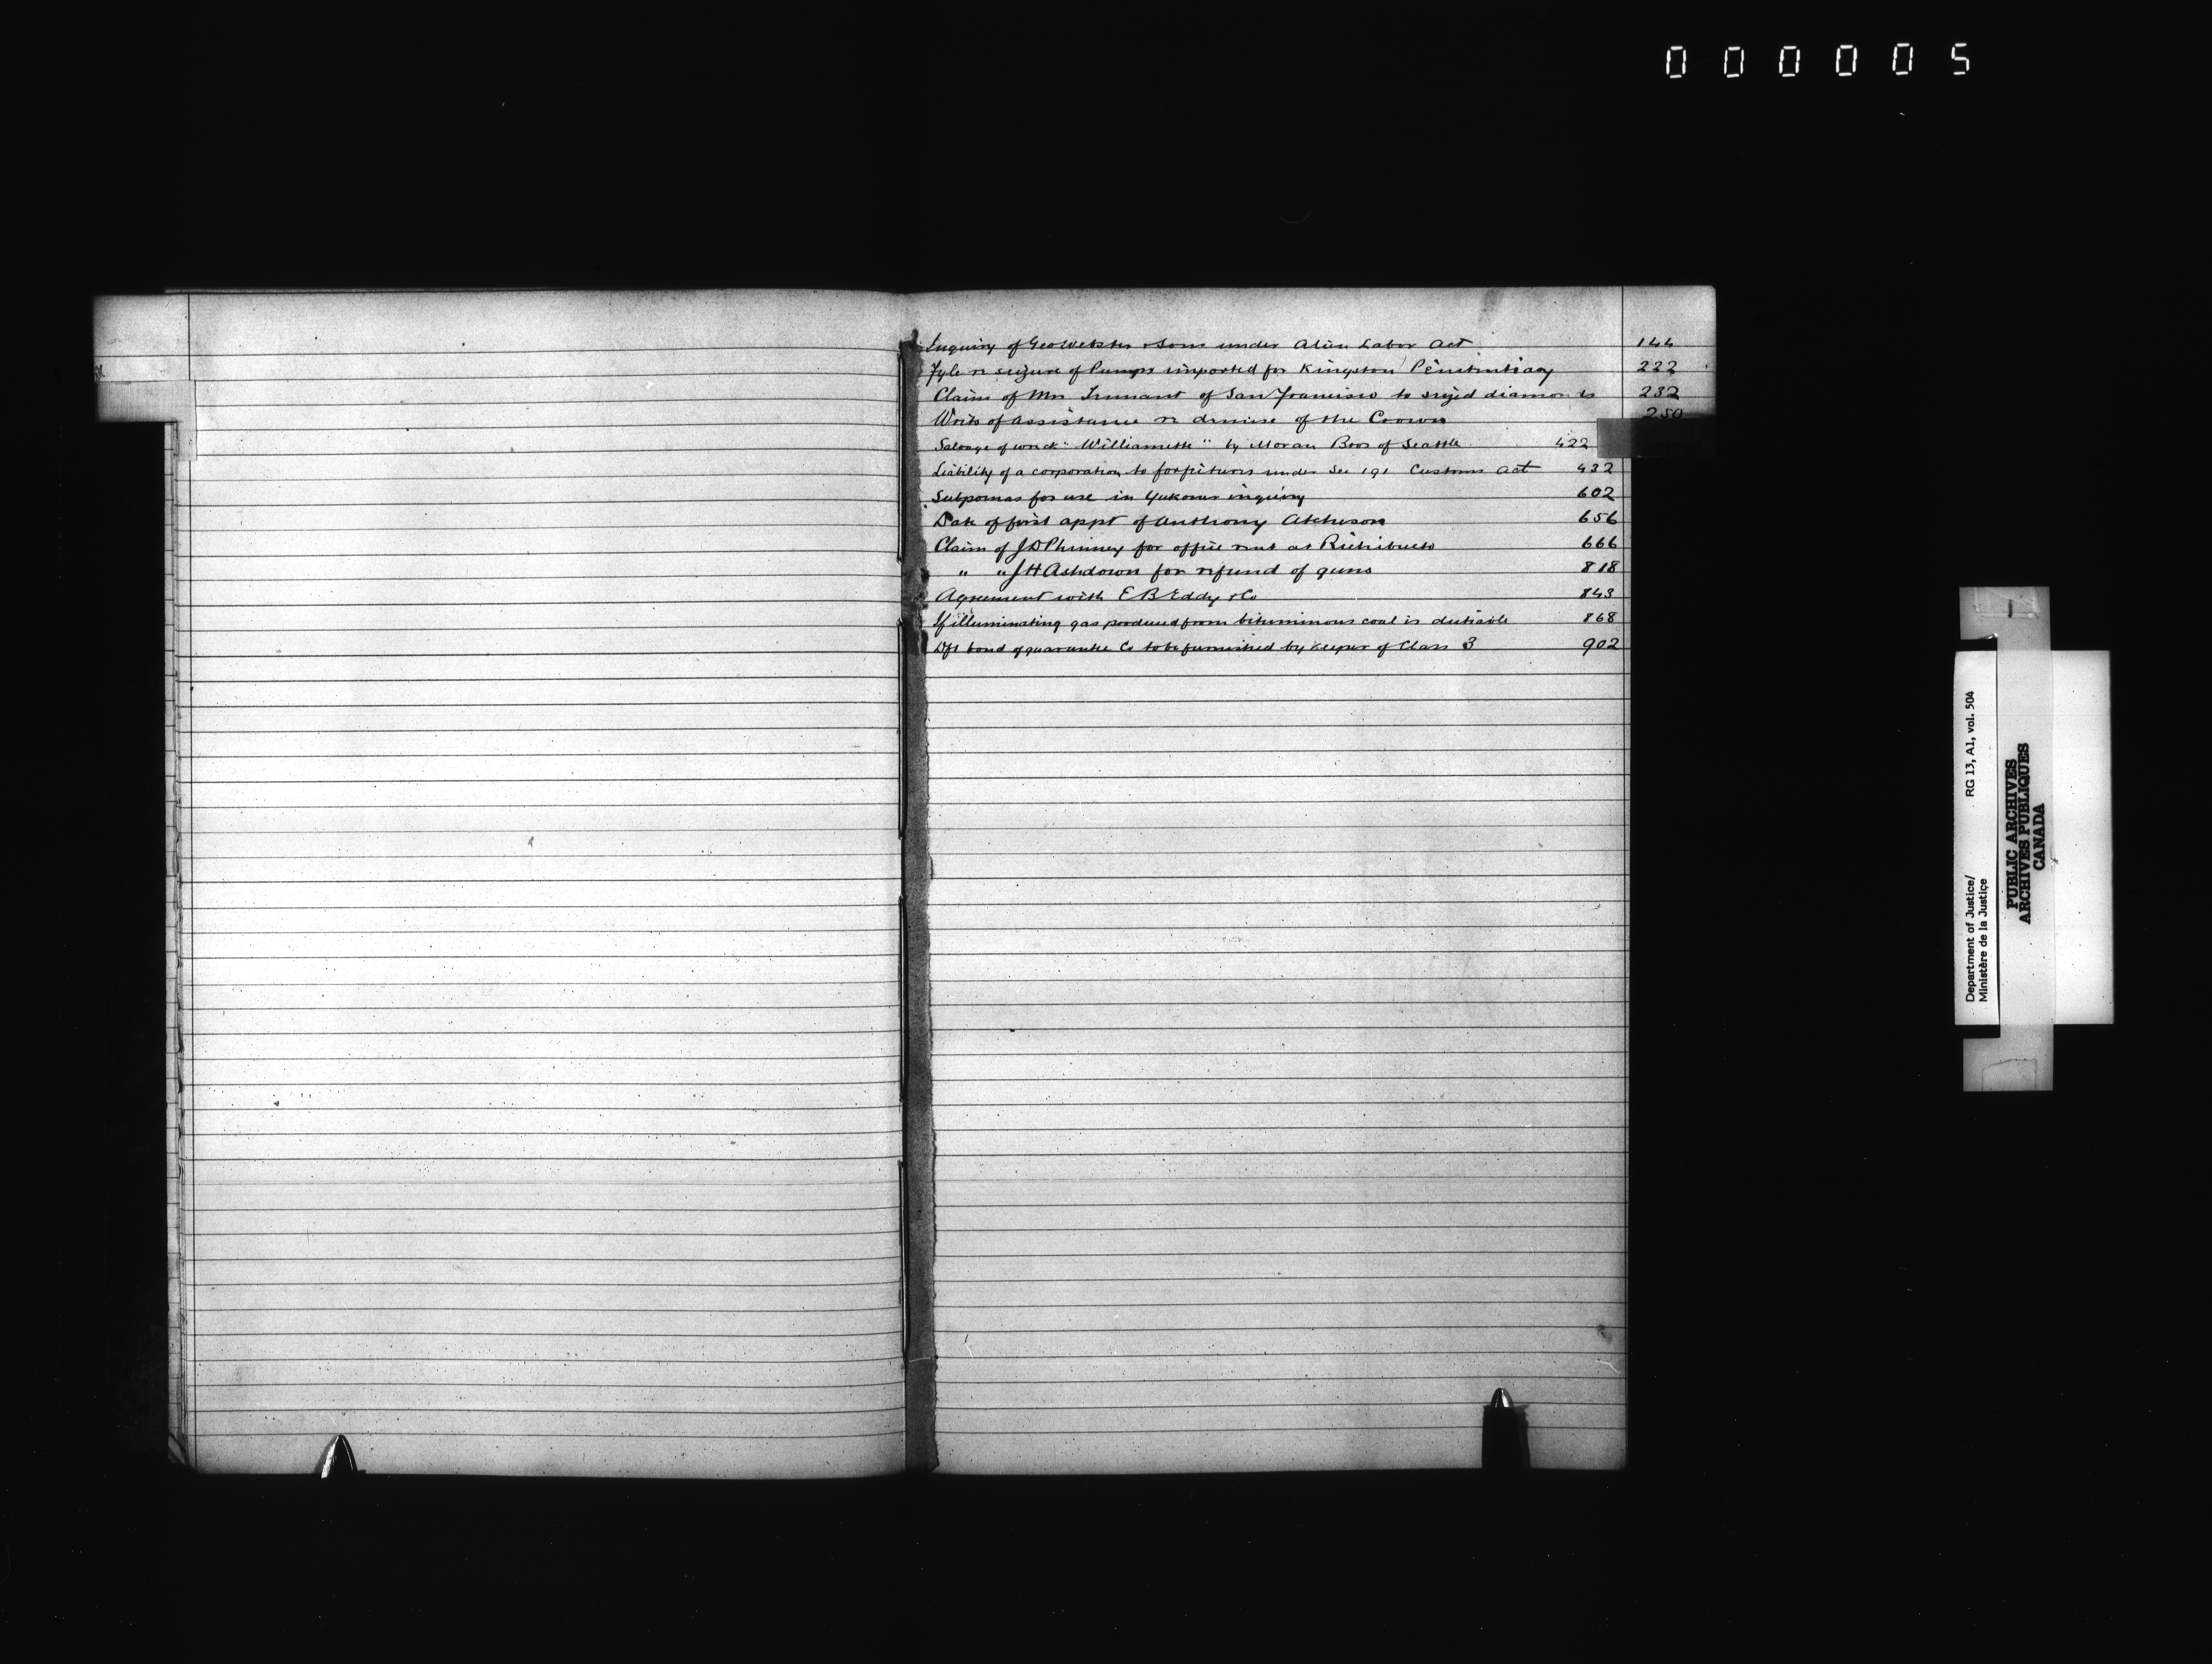 000005
Inquiry of Geo Webster & Sons under Alien Labor Act 144
Fyle re seizure of Pumps imported for Kingston Penitentiary 222
Claim of Mrs Tennant of San Francisco to seized diamonds 232
Writs of assistance re demise of the Crown 250
Salvage of wreck "Williamette" by Moran Bros of Seattle 422
Liability of a corporation to forfeitures under Sec 191 Customs Act 432
Subpoenas for use in Yukon inquiry 602
Date of first appt of Anthony Atcheson 656
Claim of J D Phinney for office rent at Richibucto 666
" " J H Ashdown for refund of guns 818
Agreement with E B Eddy & Co 843
If illuminating gas produced from bituminous coal is dutiable 868
Dft bond of guarantee Co to be furnished by Keeper of Class 3 902
Department of Justice/ RG 13, A1, vol. 504
Ministère de la Justice
PUBLIC ARCHIVES
ARCHIVES PUBLIQUES
CANADA